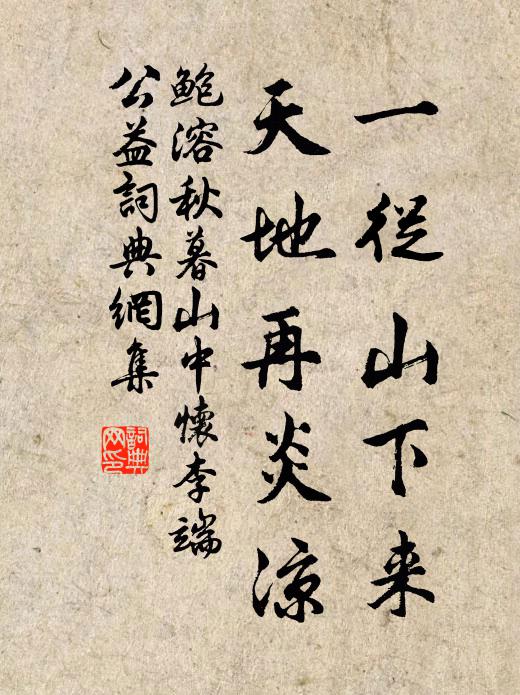 一從山下来
天地再炎涼
鮑溶秋暮山中懷李端
公益詞典網集
詞典网印